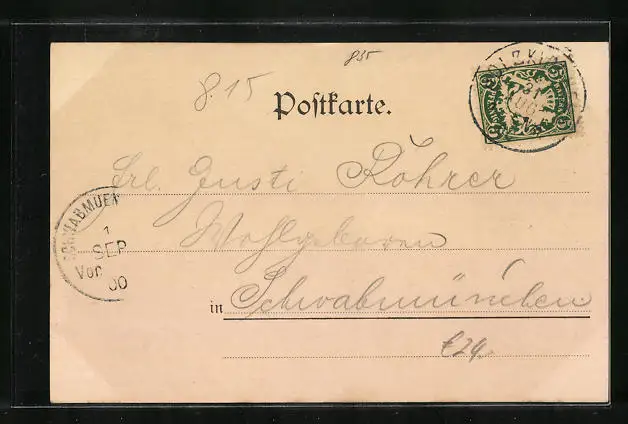 835
8.15
Postkarte.
Frl. Gusti Röhrer
Wohlgeboren
in Schwabmünchen
€24.
SCHWABMUEN
1
SEP
Vor
00
31
AUG
5 5